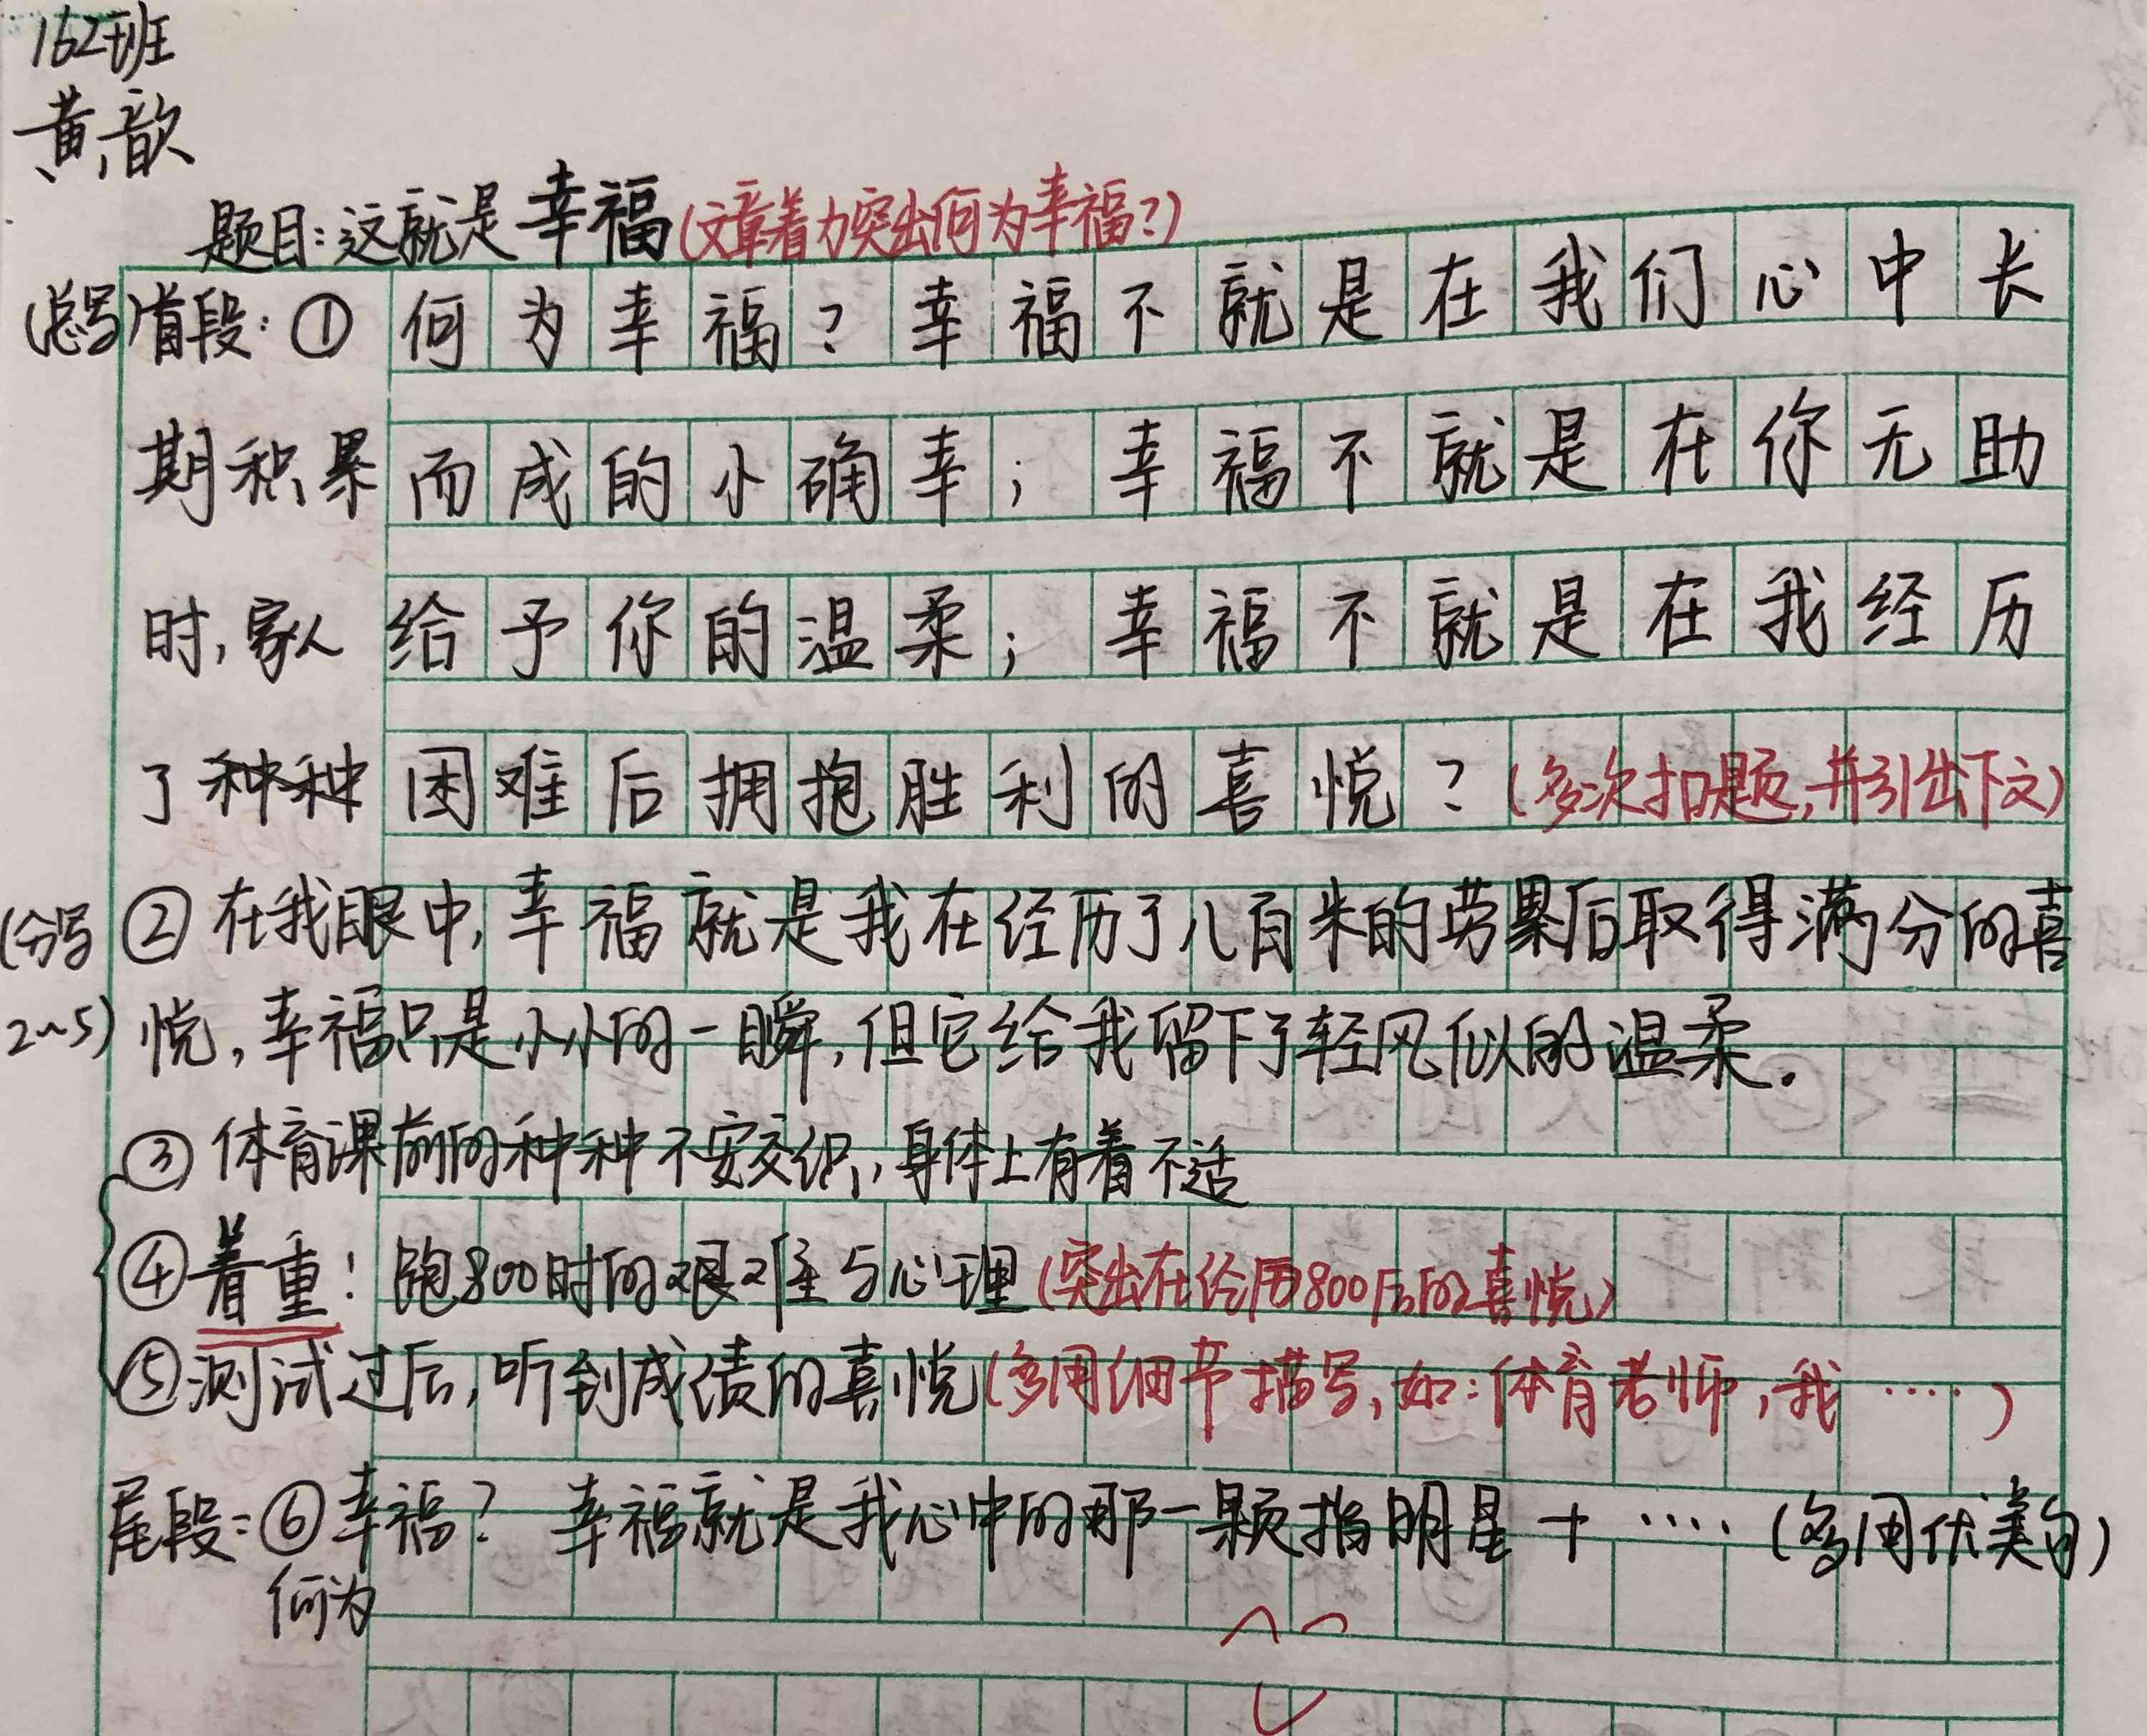 162班
黄歆
题目:这就是幸福(文章着力突出何为幸福?)
(总写)首段:①何为幸福?幸福不就是在我们心中长
期积累而成的小确幸;幸福不就是在你无助
时,家人给予你的温柔;幸福不就是在我经历
了种种困难后拥抱胜利的喜悦?(多次扣题,并引出下文)
(分写②在我眼中,幸福就是我在经历了八百米的劳累后取得满分的喜
2~5)悦,幸福只是小小的一瞬,但它给我留下了轻风似的温柔.
③体育课前的种种不安交织,身体上有着不适
④着重:跑800时的艰难与心理(突出在经历800后的喜悦)
⑤测试过后,听到成绩的喜悦(多用细节描写,如:体育老师,我……)
尾段:⑥幸福?幸福就是我心中的那一颗指明星+……(多用优美句)
何为